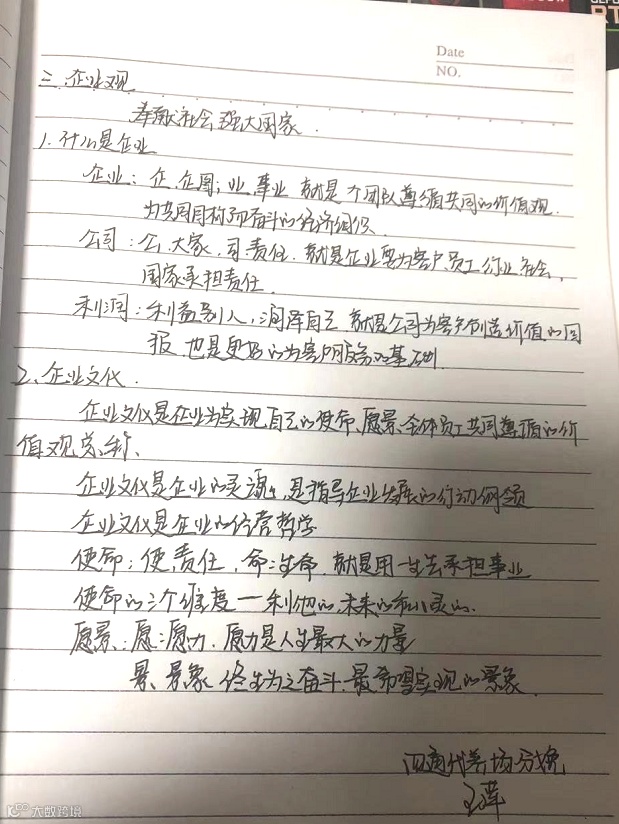 Date
NO.
三、企业观
奉献社会 强大国家.
1. 什么是企业
企业：企,企图；业,事业 就是一个团队尊循共同的价值观.
为共同目标而奋斗的经济组织.
公司：公,大家,司,责任. 就是企业要为客户、员工、行业、社会、
国家承担责任.
利润：利益别人,润泽自己 就是公司为客户创造价值的回
报,也是更好的为客户服务的基础.
2、企业文化.
企业文化是企业为实现自己的使命、愿景、全体员工共同尊循的价
值观总称、
企业文化是企业的灵魂,是指导企业发展的行动纲领
企业文化是企业的经营哲学
使命：使,责任,命：生命,就是用一生去承担事业
使命的三个维度——利他的,未来的和心灵的.
愿景：愿：愿力,愿力是人生最大的力量
景、景象、终生为之奋斗、最希望实现的景象.
代养场分娩
大数跨境